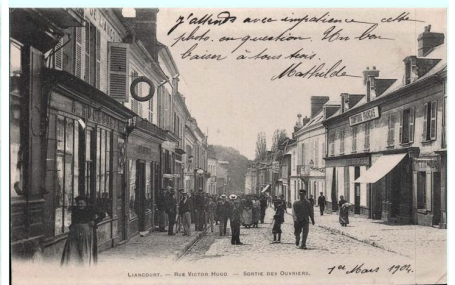 J'attends avec impatience cette
photo. en question. Un bon
baiser à tous trois.
Mathilde
COMPTOIR FRANÇAIS
LIANCOURT. — RUE VICTOR HUGO — SORTIE DES OUVRIERS.
1er Mars 1904